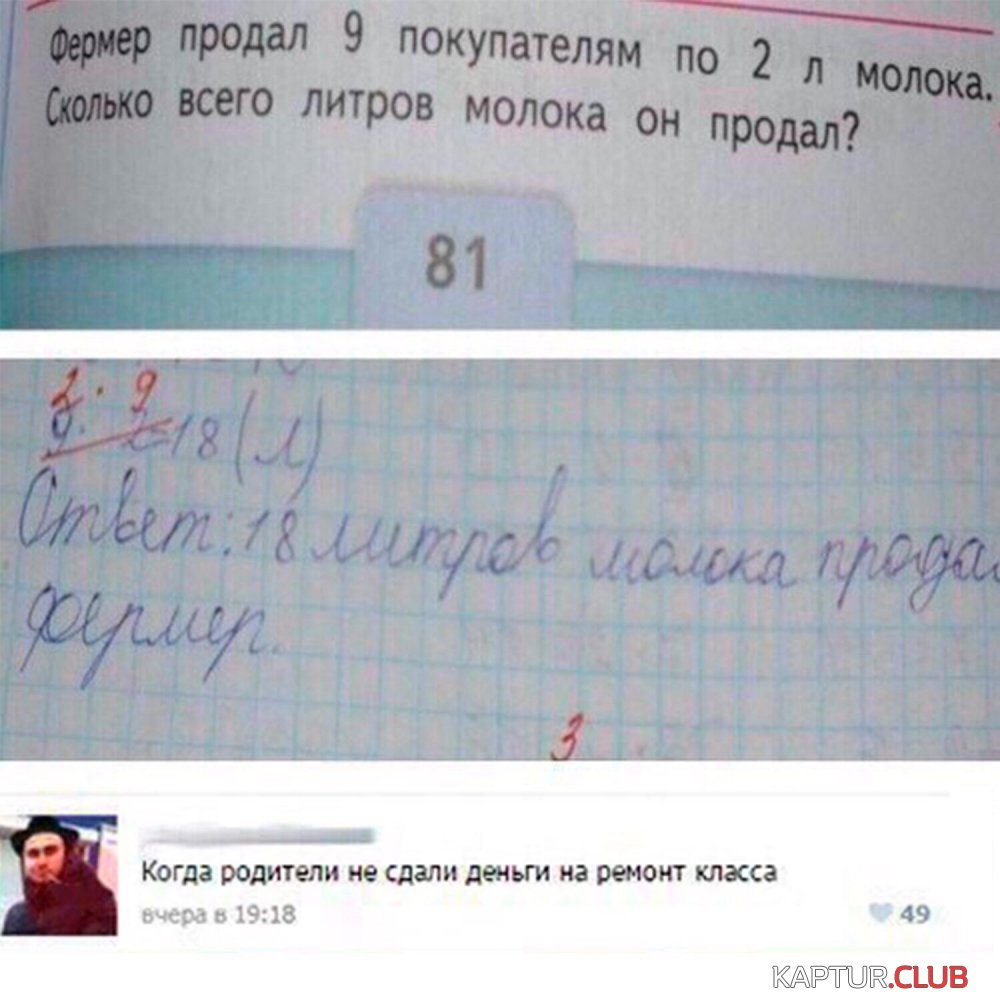 Фермер продал 9 покупателям по 2 л молока.
Сколько всего литров молока он продал?
81
2 · 9
9· =18 (л)
Ответ: 18 литров молока прода
фермер.
3
Когда родители не сдали деньги на ремонт класса
вчера в 19:18
49
KAPTUR.CLUB